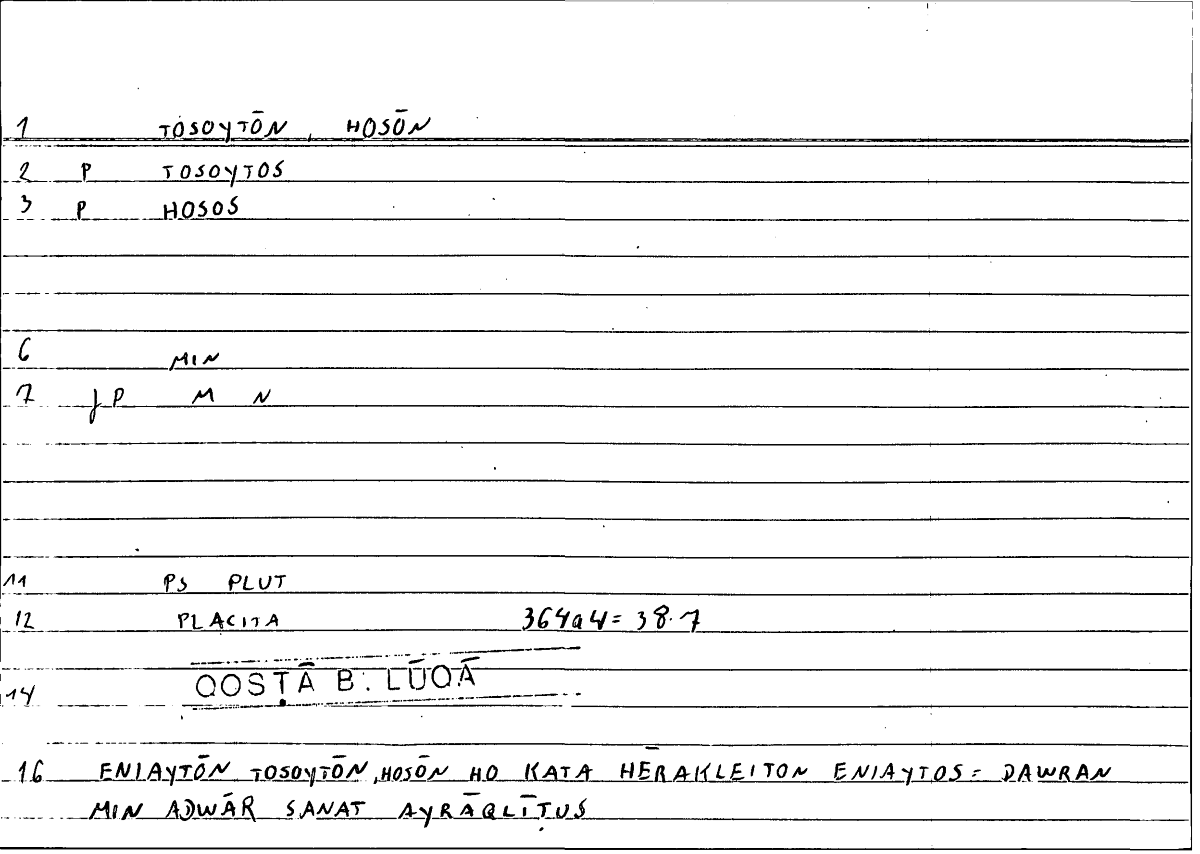 1 TOSOYTŌN, HOSŌN
2 P TOSOYTOS
3 P HOSOS
6 MIN
7 J P M N
11 PS PLUT
12 PLACITA 364a4 = 38.7
14 QOSṬĀ B. LŪQĀ
16 ENIAYTŌN TOSOYTŌN, HOSŌN HO KATA HĒRAKLEITON ENIAYTOS = DAWRAN
MIN ADWĀR SANAT AYRĀQLĪṬUS